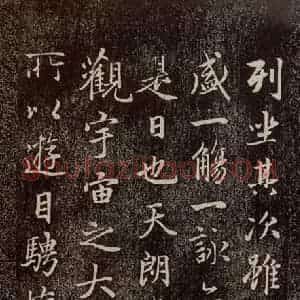 列坐其次雖
盛一觴一詠
是日也天朗
觀宇宙之大
所以遊目騁